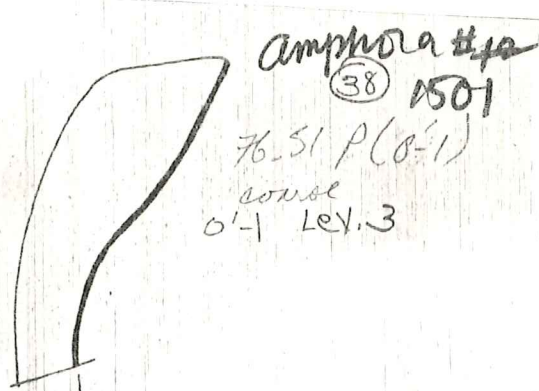 Amphora #
38 1501
76-51 P(0'-1)
coarse
0'-1 Lev. 3